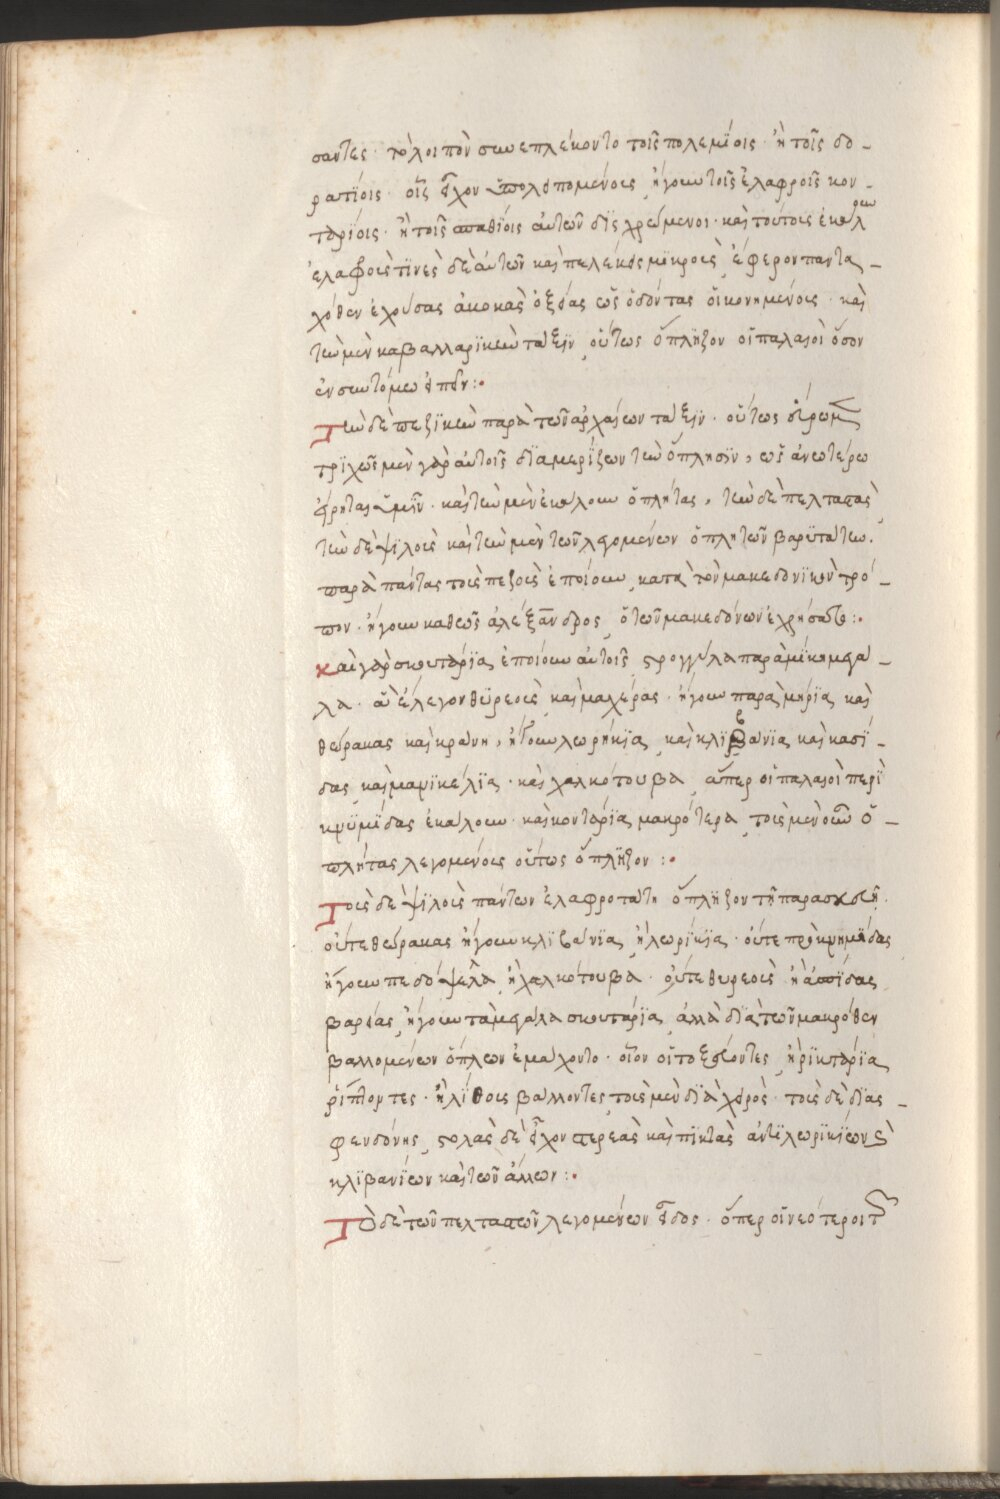 σαντες· τὸ λοιπὸν συνεπλέκοντο τοῖς πολεμίοις· ἢ τοῖς δο-
ρατίοις· οἷς εἶχον ὑπολειπομένοις ἤγουν τοῖς ἐλαφροῖς κον-
ταρίοις· ἢ τοῖς σπαθίοις αὐτῶν δὶς χρώμενοι· καὶ τούτοις ἐκάλουν
ἐλαφοὺς τινὲς δὲ αὐτῶν καὶ πελέκεις μικροὺς ἔφερον παντα-
χόθεν ἐχούσας ἀκοκὰς ὀξείας ὡς ὀδόντας οἰκονημένους· καὶ
τὴν μὲν καβαλλαρικὴν τάξιν οὕτως ὅπλιζον οἱ παλαιοὶ ὅσον
ἐν συντόμω εἰπεῖν:·
Τὴν δὲ πεζικὴν παρὰ τῶν ἀρχαίων τάξιν· οὕτως εὕρωμεν
τριχῶς μὲν γὰρ αὐτοῖς διαμερίζων τὴν ὅπλησιν, ὡς ἀνωτέρω
εἴρηται ὑμῖν· καὶ τὴν μὲν ἐκάλουν ὁπλίτας, τὴν δὲ πελταστὰς
τὴν δὲ ψιλοὺς καὶ τὴν μὲν τῶν λεγομένων ὁπλητῶν βαρυτάτην.
παρὰ πάντας τοὺς πεζοὺς ἐποίουν κατὰ τὸν μακεδονικὸν τρό-
πον· ἤγουν καθὼς ἀλέξανδρος ὁ τῶν μακεδόνων ἐχρήσατο:·
καὶ γὰρ σκουτάρια ἐποίουν αὐτοῖς στρογγύλα παραμίκη μεγά-
λα· ἃ ἔλεγον θυρεοὺς καὶ μαχέρας· ἤγουν παραμήρια καὶ
θώρακας καὶ κράνη, ἤγουν λωρήκια καὶ κλιβάνια καὶ κασί-
δας καὶ μανικέλια· καὶ χαλκότουβα ἅπερ οἱ παλαιοὶ περὶ
κνημίδας ἐκάλουν· καὶ κοντάρια μακρότερα τοὺς μὲν οὖν ὁ-
πλήτας λεγομένους οὕτως ὅπλιζον:·
Τοὺς δὲ ψιλοὺς πάντων ἐλαφροτάτη ὅπλιζον τῇ παρασκευῇ.
οὔτε θώρακας ἤγουν κλιβάνια ἢ λωρίκια· οὔτε προκνημίδας
ἤγουν πεδόψελα ἢ χαλκότουβα· οὔτε θυρεοὺς ἢ ἀσπίδας
βαρείας ἤγουν τὰ μεγάλα σκουτάρια ἀλλὰ διὰ τῶν μακρόθεν
βαλλομένων ὅπλων ἐμάχοντο· οἷον οἱ τοξεύοντες ἢ ῥικτάρια
ῥίπτοντες· ἢ λίθοις βάλλοντες τοὺς μὲν διὰ χειρὸς· τοὺς δὲ διας-
φενδόνης στολὰς δὲ εἶχον στερεὰς καὶ πικτὰς ἀντὶ λωρικίων καὶ
κλιβανίων καὶ τῶν ἄλλων:·
Τὸ δὲ τῶν πελταστῶν λεγομένων εἶδος· ὅπερ οἱ νεότεροι τ